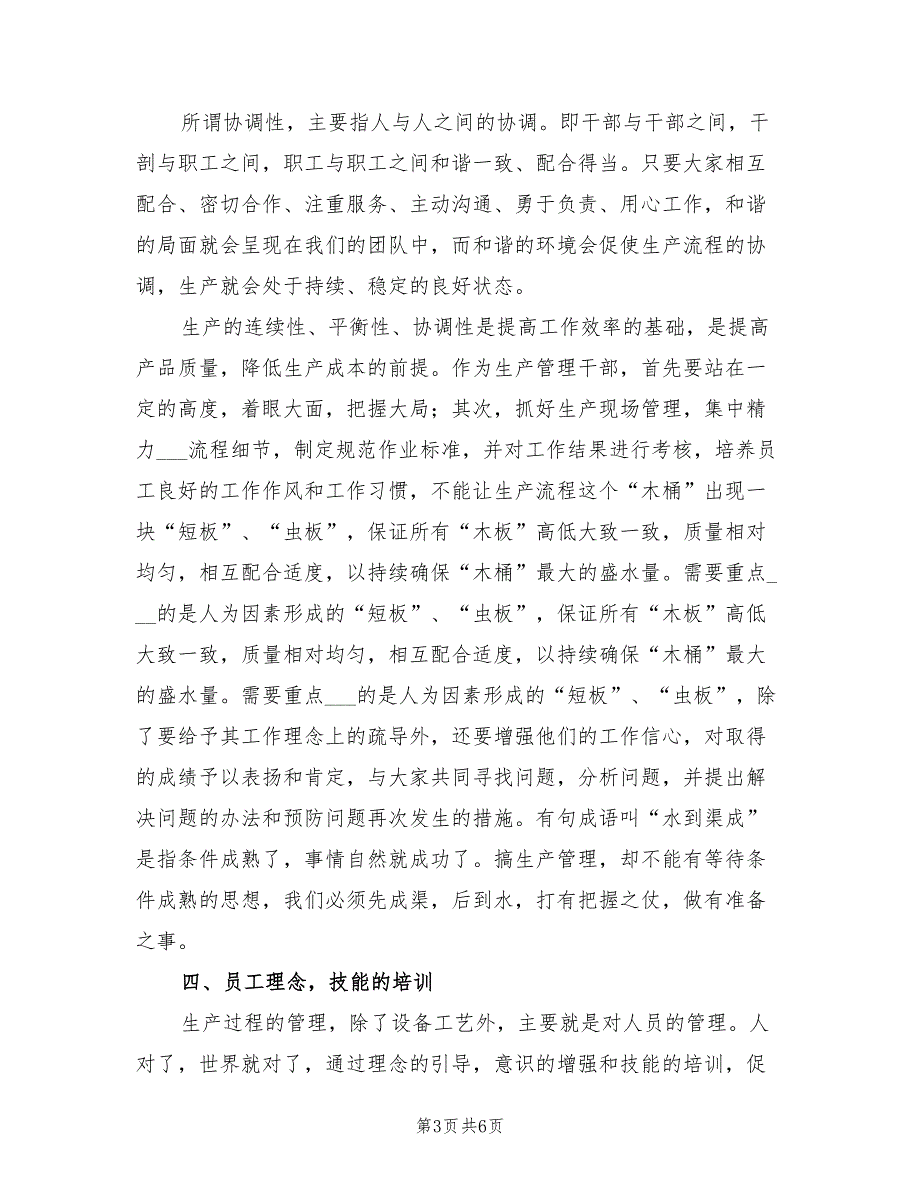 所谓协调性，主要指人与人之间的协调。即干部与干部之间，干
剖与职工之间，职工与职工之间和谐一致、配合得当。只要大家相互
配合、密切合作、注重服务、主动沟通、勇于负责、用心工作，和谐
的局面就会呈现在我们的团队中，而和谐的环境会促使生产流程的协
调，生产就会处于持续、稳定的良好状态。
生产的连续性、平衡性、协调性是提高工作效率的基础，是提高
产品质量，降低生产成本的前提。作为生产管理干部，首先要站在一
定的高度，着眼大面，把握大局；其次，抓好生产现场管理，集中精
力___流程细节，制定规范作业标准，并对工作结果进行考核，培养员
工良好的工作作风和工作习惯，不能让生产流程这个“木桶”出现一
块“短板”、“虫板”，保证所有“木板”高低大致一致，质量相对
均匀，相互配合适度，以持续确保“木桶”最大的盛水量。需要重点_
__的是人为因素形成的“短板”、“虫板”，保证所有“木板”高低
大致一致，质量相对均匀，相互配合适度，以持续确保“木桶”最大
的盛水量。需要重点___的是人为因素形成的“短板”、“虫板”，除
了要给予其工作理念上的疏导外，还要增强他们的工作信心，对取得
的成绩予以表扬和肯定，与大家共同寻找问题，分析问题，并提出解
决问题的办法和预防问题再次发生的措施。有句成语叫“水到渠成”
是指条件成熟了，事情自然就成功了。搞生产管理，却不能有等待条
件成熟的思想，我们必须先成渠，后到水，打有把握之仗，做有准备
之事。
四、员工理念，技能的培训
生产过程的管理，除了设备工艺外，主要就是对人员的管理。人
对了，世界就对了，通过理念的引导，意识的增强和技能的培训，促
第3页 共6页